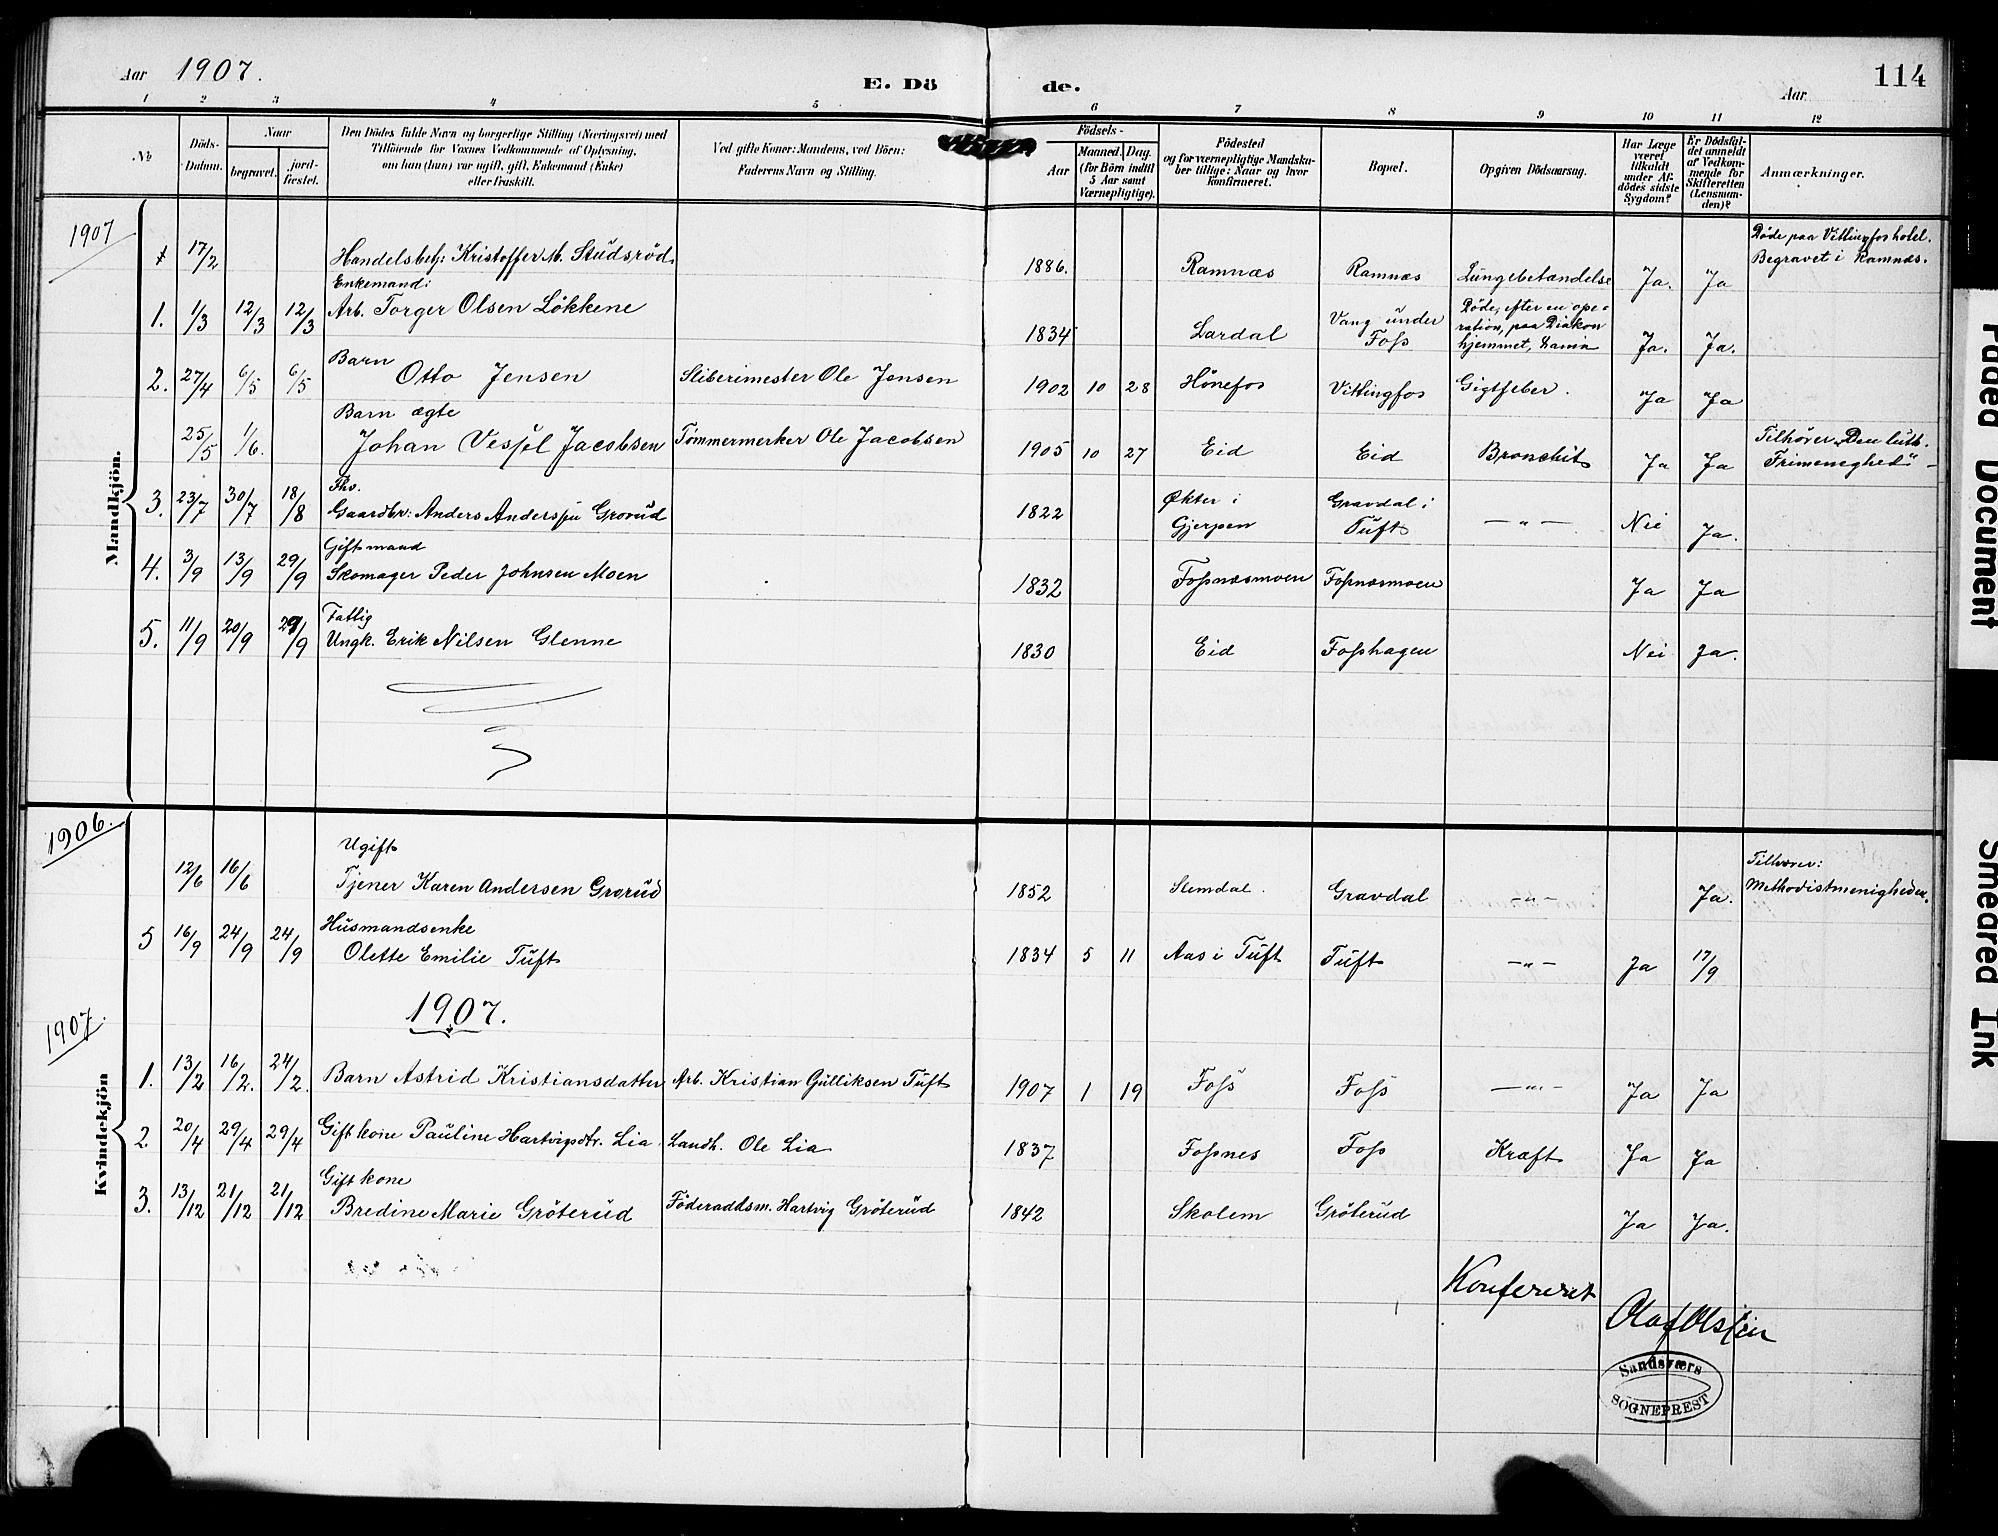 Aar 1907. E. Dö de. Aar 114
1 2 3 4 5 6 7 8 9 10 11 12
No
Döds-Datum.
Naar
begravet. jord-fæstet.
Den Dödes fulde Navn og borgerlige Stilling (Næringsvei) med
Tilföiende for Voxnes Vedkommende af Oplysning,
om han (hun) var ugift, gift, Enkemand (Enke)
eller fraskilt.
Ved gifte Koner: Mandens, ved Börn:
Faderens Navn og Stilling.
Födsels-
Aar Maaned. Dag.
(for Börn indtil
5 Aar samt
Værnepligtige).
Födested
og for værnepligtige Mandska-
ber tillige: Naar og hvor
konfirmeret.
Bopæl.
Opgiven Dödsaarsag.
Har Læge
været
tilkaldt
under Af-
dödes sidste
Sygdom?
Er Dödsfal-
det anmeldt
af Vedkom-
mende for
Skifteretten
(Lensman-
den)?
Anmærkninger.
Mandkjön.
1907
17/2 Handelsbetj: Kristoffer M. Studsröd. 1886. Ramnæs Ramnæs Lungebetændelse Ja. Ja Döde paa Vittingfoshotel.
Begravet i Ramnæs.
Enkemand:
1. 1/3 12/3 12/3 Arb. Torger Olsen Lökkene 1834 Lardal Vang under
Foss
Döde, efter en ope-
ration, paa Diakon
hjemmet, Ja. Ja.
Barn
2. 27/4 6/5 6/5 Otto Jensen Sliberimester Ole Jensen 1902 10 28 Hönefos Vittingfos Gigtfeber. Ja Ja
Barn ægte
25/5 1/6. Johan Jacobsen Tömmermerker Ole Jacobsen 1905 10 27 Eid Eid Bronchit Ja Ja Tilhörer „Den luth.
Frimenighed" -
Fhv.
3. 23/7 30/7 18/8 Gaardbr: Anders Anderssen Grorud 1822 Økter i
Gjerpen
Gravdal i
Tuft
— " — Nei Ja.
Giftsmand
4. 3/9 13/9 29/9 Skomager Peder Johnsen Moen 1832 Fossnæsmoen Fossnæsmoen Ja Ja
Fattig
5. 11/9 20/9 29/9 Ungk. Erik Nilsen Glenne 1830 Eid Fosshagen Nei Ja.
Kvindekjön
1906.
Ugift
12/6 16/6 Tjener Karen Andersen Grorud 1852 Slemdal. Gravdal — " — Ja. Tilhører:
Methodistmenigheden.
Husmandsenke
5 16/9 24/9 24/9 Olette Emilie Tuft 1834 5 11 Aas i Tuft Tuft — " — Ja 17/9
1907. 1907.
1. 13/2 16/2. 24/2. Barn Astrid Kristiansdatter Arb. Kristian Gulliksen Tuft 1907 1 19 Foss Foss — " — Ja Ja
2. 20/4 29/4 29/4 Gift kone Pauline Hartvigsdtr. Lia. Landh. Ole Lia 1837 Fossnes Foss Kræft Ja Ja
Gift kone
3. 13/12 21/12 21/12 Bredine Marie Gröterud Föderaadsm. Hartvig Gröterud 1842 Skolem Gröterud Ja Ja.
Konfereret
Olaf Olssen
Sandsværs
SOGNEPREST
Faded Document
Smeared Ink